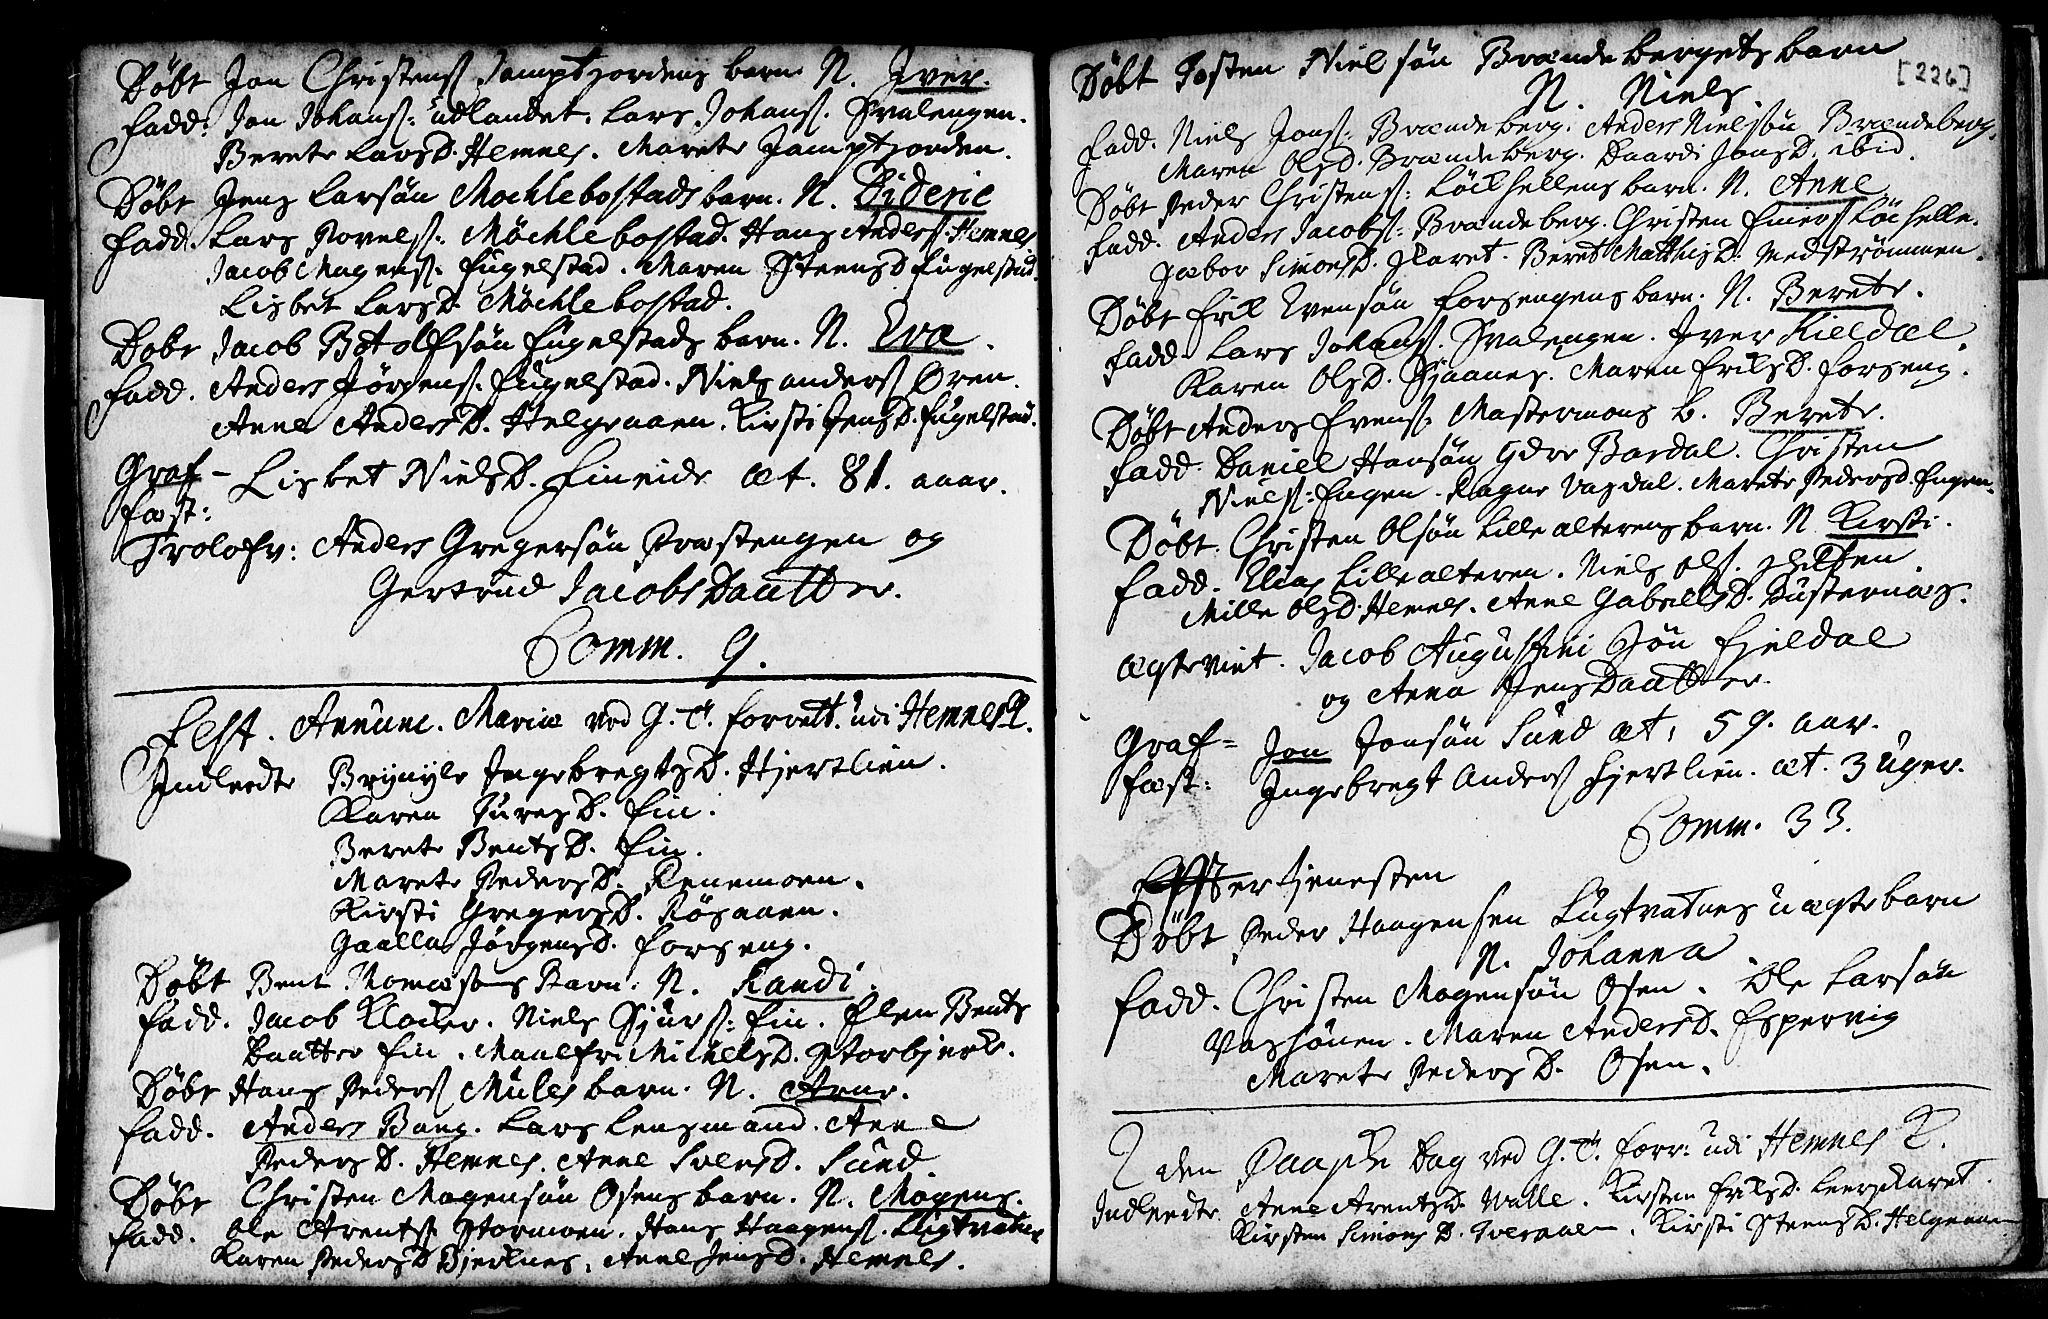 Döbt Jon Christens. Jamptjordens barn N. Iver.
fadd: Jon Johans: udlandet. Lars Johans. Svalengen.
Berete LarsD. Hemnes. Marete Jamptjorden.
Döbt Jens Larsön Mochlebostads barn. N. Dideric
fadd. Lars Povels: Möchlebostad. Hans Anders. Hemnes
Jacob Mogens. Fugelstad. Maren SteensD. Fugelstad.
Lisbet LarsD. Möchlebostad.
Döbt Jacob Botolfsön Fugelstads barn. N. Eva.
fadd. Anders Jörgens. Fugelstad. Niels Anders. Øren.
Anne AndersD. Helgeaaen. Kirsti JensD. Fugelstad.
Graf- Lisbet NielsD. Fineide æt. 81. aaar.
fæst:
Trolofv: Anders Gregersön Præstengen og
Gertrud Jacobs Daatter.
Comm. 9.
Fest. Annunc. Mariæ ved G. T. forrett. udi Hemnes K.
Indleedte Brynyle IngebregtsD. Hjertlien.
Karen TuresD. fin.
Berete BentsD. fin.
Marete PedersD. Renemoen.
Kirsti GregersD. Rösaaen.
Gaalla JörgensD. Forseng.
Döbt Bent Thomæsöns Barn. N. Randi.
fadd. Jacob Klocker. Niels Sjurs: fin. Elen Bents
Daatter fin. Maalfri MichelsD. Storbjerk.
Döbt Hans Peders. Mules barn. N. Arne.
fadd. Anders Bang. Lars Lensmand. Anne
PedersD. Hemnes. Anne IversD. Sund.
Döbt Christen Mogensön Osens barn. N. Mogens.
fadd. Ole Arents. Stormoen. Hans Haagens. Lugtvatne
Karen PedersD. Bjerknes. Anne JensD. Hemnes.
[226]
Döbt Josten Nielsön Brændebergets barn
N. Niels.
fadd. Niels Jons: Brændeberg. Anders Nielsön Brændeberg.
Maren OlsD. Brændeberg. Baardi JonsD. ibid.
Döbt Peder Christens: Löckhellens barn. N. Anne
fadd. Anders Jacobs: Brændeberg. Christen Löchelle.
Gæbor SimonsD. Beret MatthisD. Nedströmmen.
Döbt Erik Evensön Forsengens barn. N. Berete.
fadd. Lars Johans. Svalengen. Iver Kieldal.
Karen OlsD. Sjaanes. Maren EriksD. Forseng.
Döbt Anders Evens. Mastermons b. Berete.
fadd. Daniel Hansön ydre Bardal. Christen
Niels: Engen. Ragne Vasdal. Marete PedersD. Engen.
Döbt: Christen Olsön Lillealterens barn. N. Kirsti.
fadd. Elias Lillealteren. Niels Ols.
Mille OlsD. Hemnes. Anne GabrielsD. Busternæs.
ægteviet. Jacob Augustini Sön Fjeldal
og Anna Jens Daatter.
Graf- Jon Jonsön Sund æt: 59. aar.
fæst: Ingebregt Anders. Hjertlien. æt. 3 uger.
Comm. 33.
Efftertjenesten
Döbt Peder Haagensen Lugtvatnes uægte barn
N. Johanna
fadd. Christen Mogensön Osen. Ole Larsön
Vashönen. Maren AndersD. Espervig
Marete PedersD. Osen.
2 den Paaske Dag ved G. T. forr: udi Hemnes K.
Indleedte Anne ArentsD. Valle. Kirsten EriksD. Leerskaret.
Kirsten SimonsD. Tveraaen. Kirsti SteensD. Helgeaaen